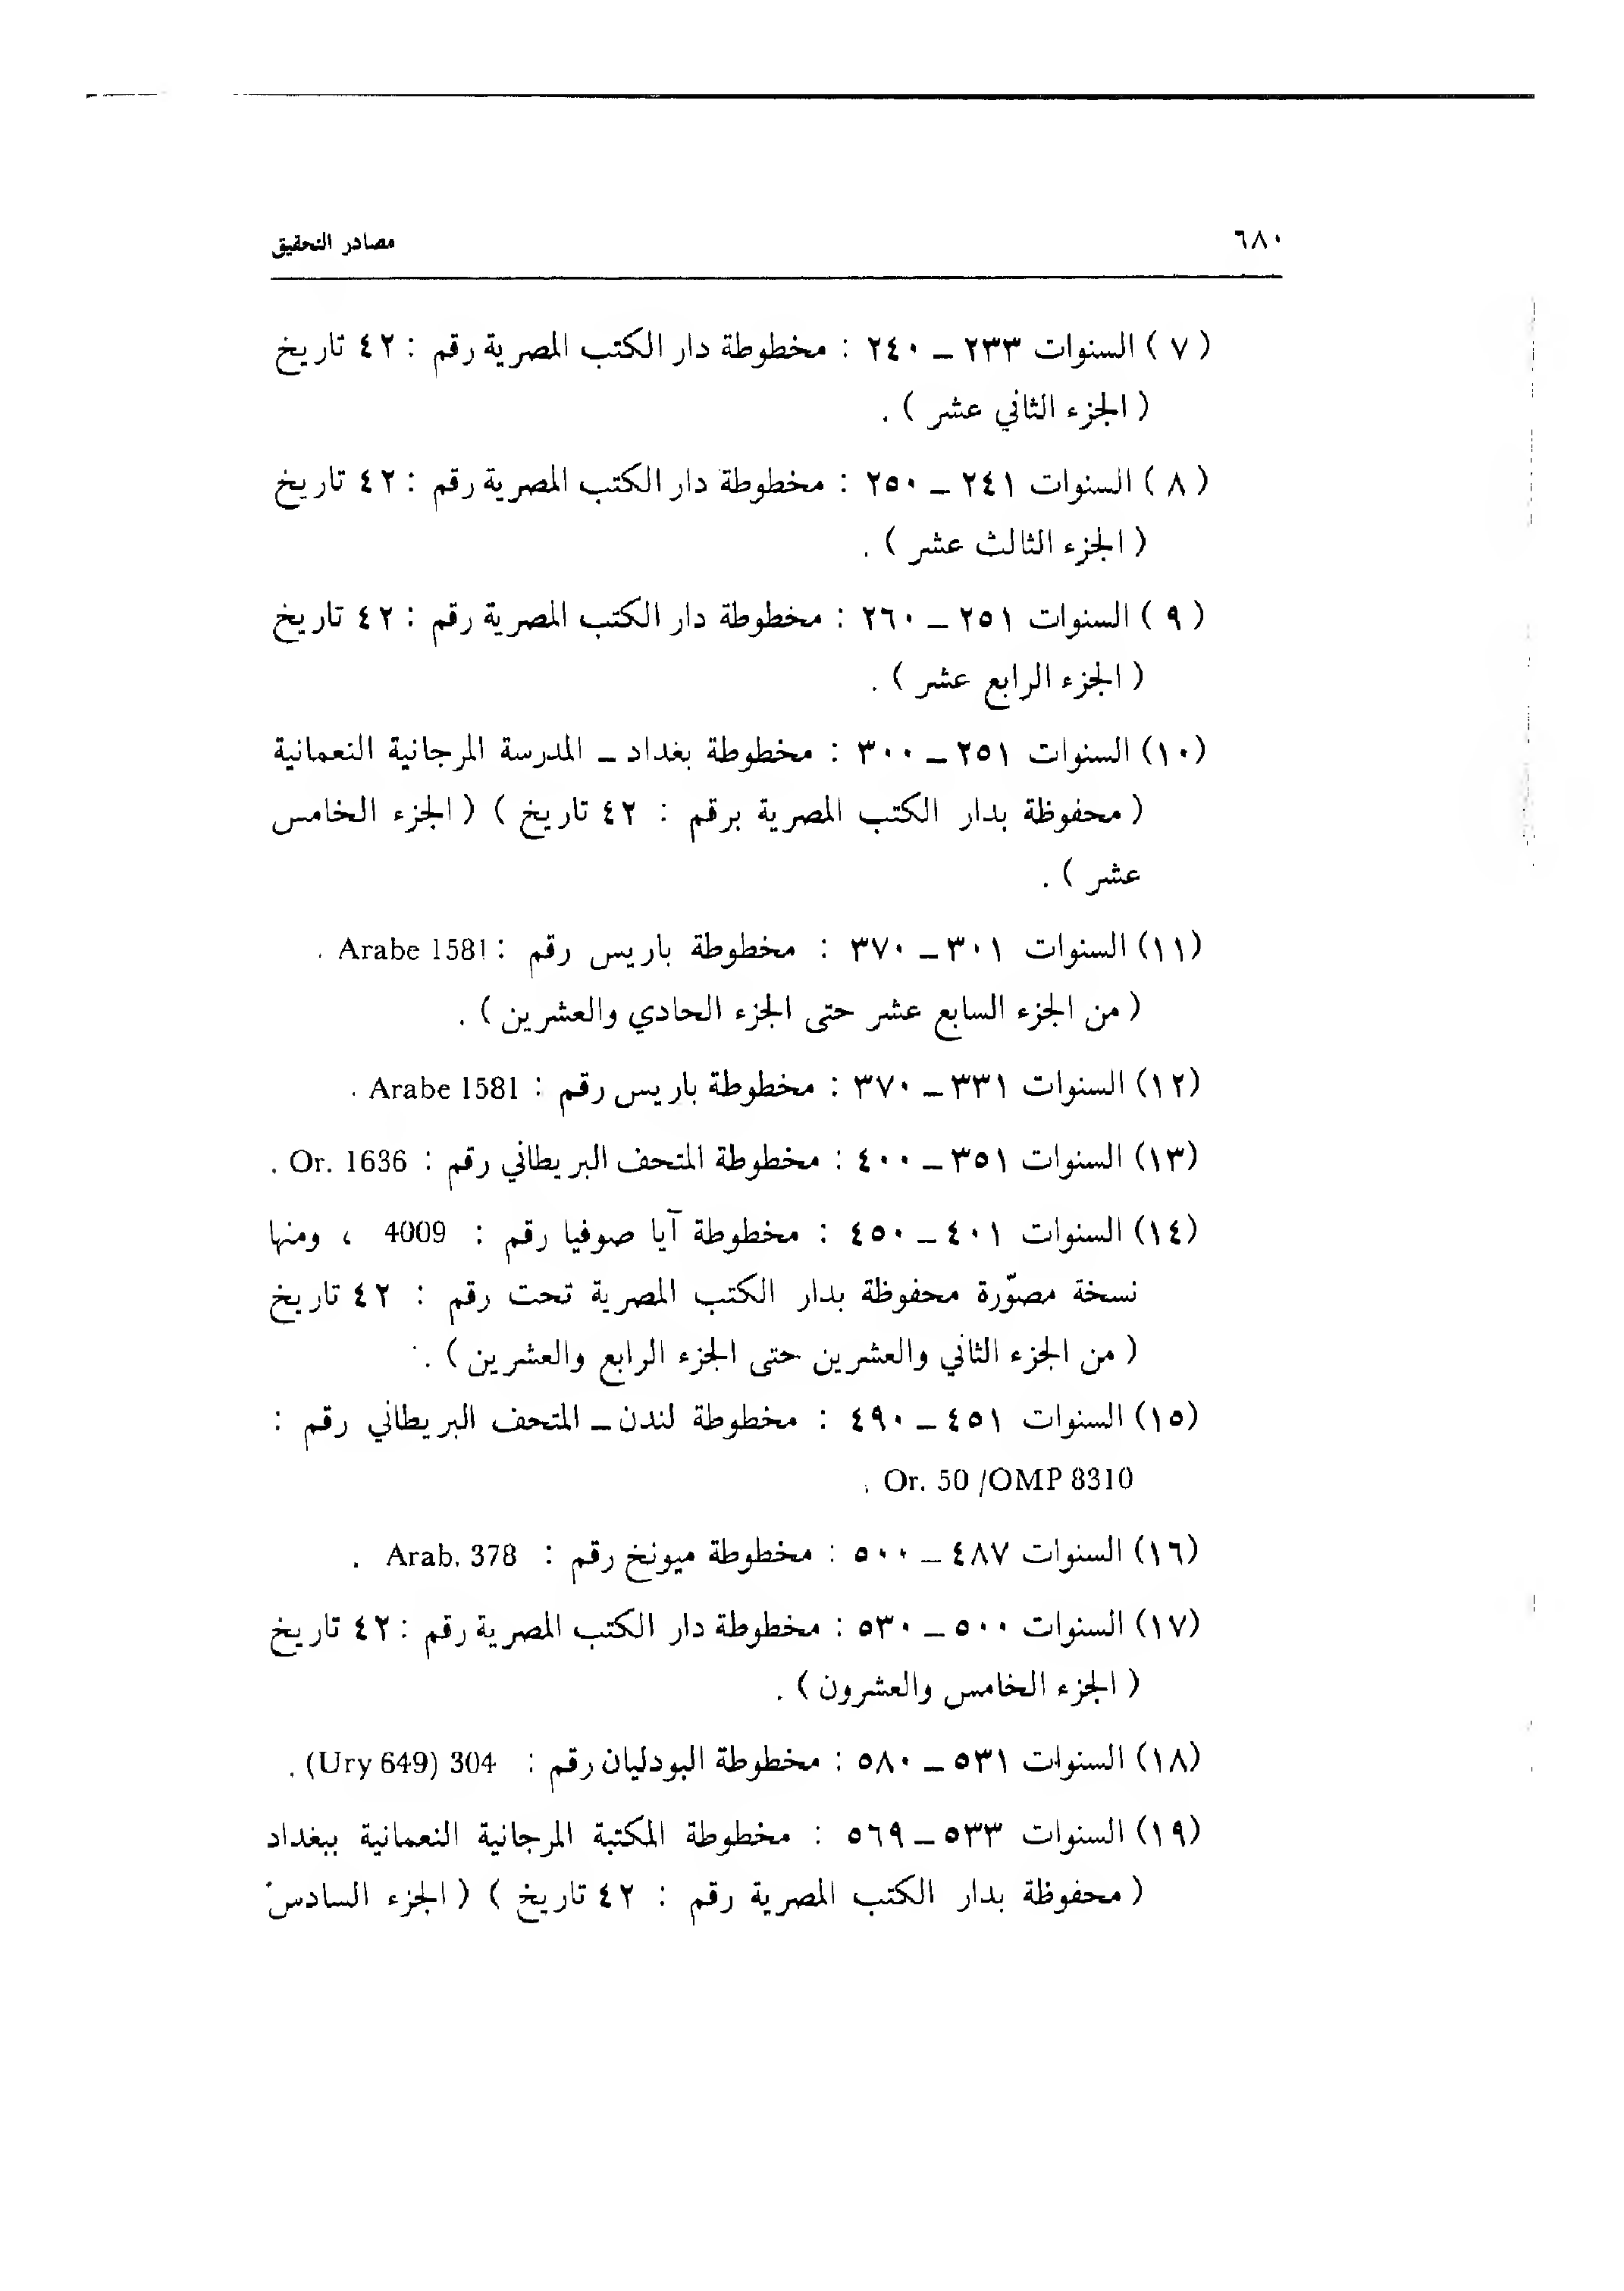 ٦٨٠ مصادر التحقيق
( ٧ ) السنوات ٢٣٣ – ٢٤٠ : مخطوطة دار الكتب المصرية رقم : ٤٢ تاريخ
( الجزء الثاني عشر ) .
( ٨ ) السنوات ٢٤١ – ٢٥٠ : مخطوطة دار الكتب المصرية رقم : ٤٢ تاريخ
( الجزء الثالث عشر ) .
( ٩ ) السنوات ٢٥١ – ٢٦٠ : مخطوطة دار الكتب المصرية رقم : ٤٢ تاريخ
( الجزء الرابع عشر ) .
(١٠) السنوات ٢٥١ – ٣٠٠ : مخطوطة بغداد – المدرسة المرجانية النعمانية
( محفوظة بدار الكتب المصرية برقم : ٤٢ تاريخ ) ( الجزء الخامس
عشر ) .
(١١) السنوات ٣٠١ – ٣٧٠ : مخطوطة باريس رقم : Arabe 1581 .
( من الجزء السابع عشر حتى الجزء الحادي والعشرين ) .
(١٢) السنوات ٣٣١ – ٣٧٠ : مخطوطة باريس رقم : Arabe 1581 .
(١٣) السنوات ٣٥١ – ٤٠٠ : مخطوطة المتحف البريطاني رقم : Or. 1636 .
(١٤) السنوات ٤٠١ – ٤٥٠ : مخطوطة آيا صوفيا رقم : 4009 ، ومنها
نسخة مصوّرة محفوظة بدار الكتب المصرية تحت رقم : ٤٢ تاريخ
( من الجزء الثاني والعشرين حتى الجزء الرابع والعشرين ) .
(١٥) السنوات ٤٥١ – ٤٩٠ : مخطوطة لندن – المتحف البريطاني رقم :
Or. 50 /OMP 8310 .
(١٦) السنوات ٤٨٧ – ٥٠٠ : مخطوطة ميونخ رقم : Arab. 378 .
(١٧) السنوات ٥٠٠ – ٥٣٠ : مخطوطة دار الكتب المصرية رقم : ٤٢ تاريخ
( الجزء الخامس والعشرون ) .
(١٨) السنوات ٥٣١ – ٥٨٠ : مخطوطة البودليان رقم : (Ury 649) 304 .
(١٩) السنوات ٥٣٣ – ٥٦٩ : مخطوطة المكتبة المرجانية النعمانية ببغداد
( محفوظة بدار الكتب المصرية رقم : ٤٢ تاريخ ) ( الجزء السادس